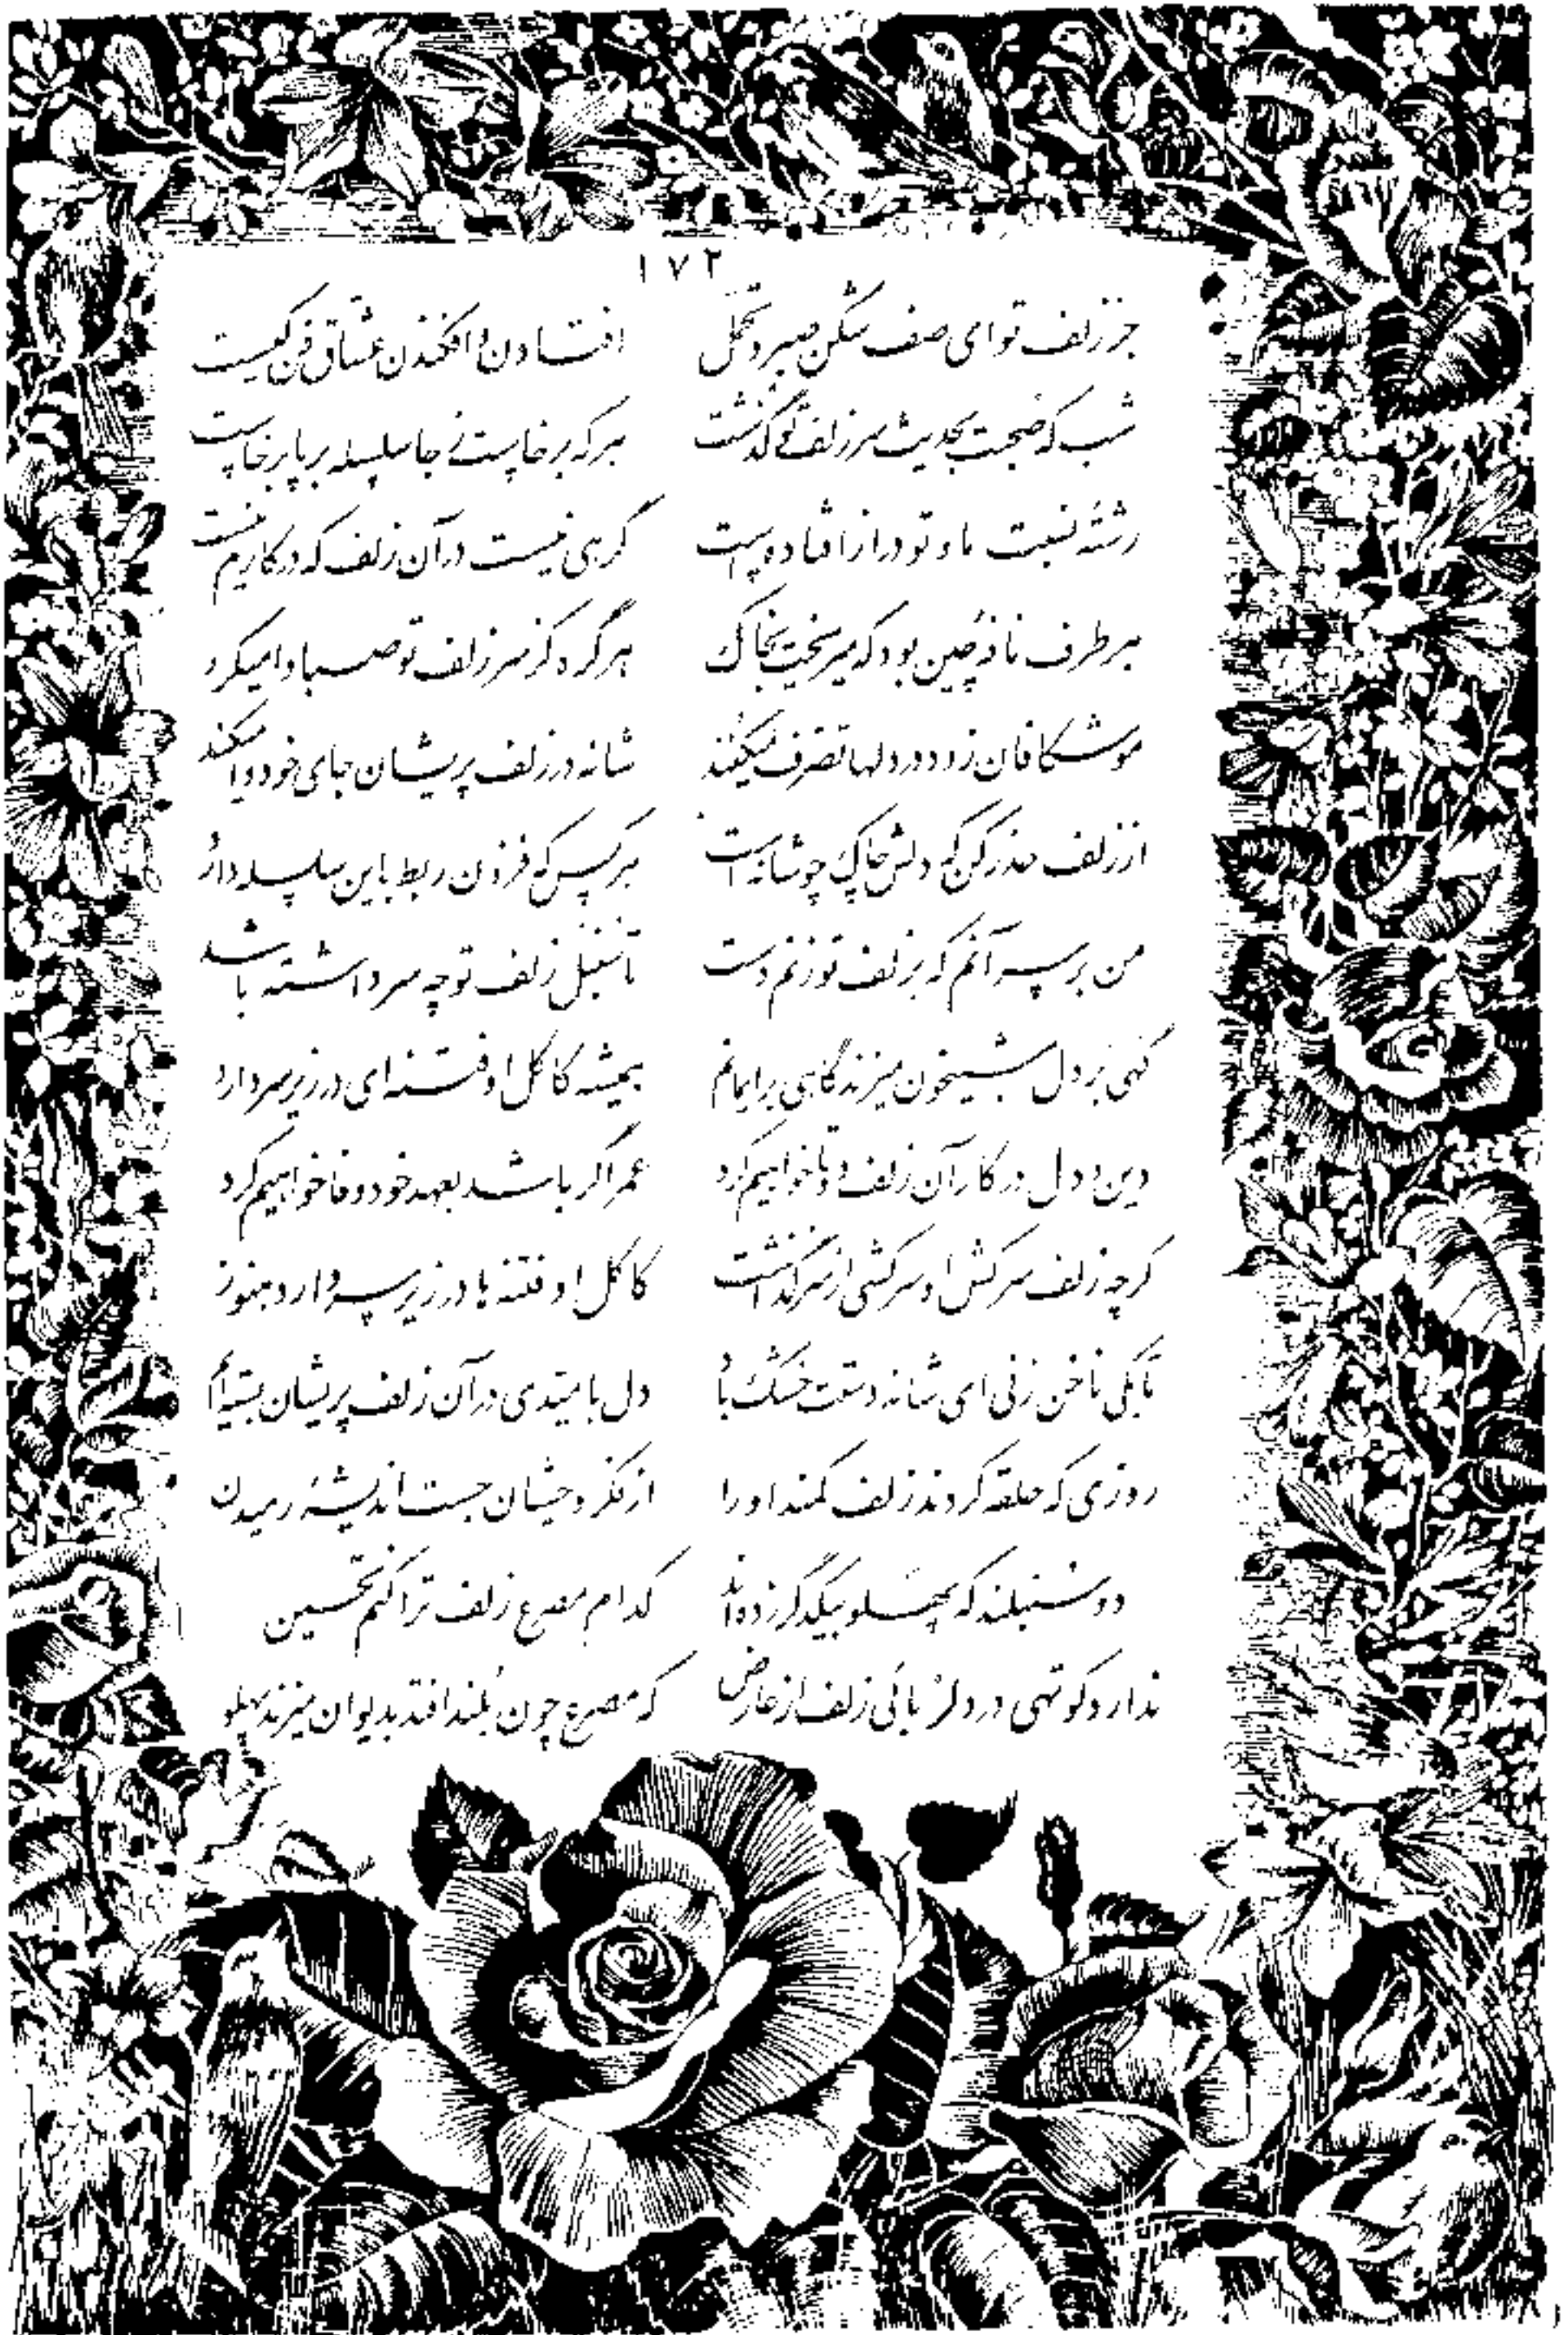 ۱۷۲
جز زلف تو ای صف شکن صبر و تحمل افتادن و افکندن عشاق فن کیست
شب که صحبت بحدیث سر زلف تو گذشت هر که برخاست ز جا سلسله بر پا برخاست
رشته نسبت ما و تو دراز افتاده است گرهی نیست در آن زلف که در کارم نیست
هر طرف نافه چین بود که میریخت بخاک هر گره کز سر زلف تو صبا وا میکرد
موشکافان زود در دلها تصرف میکنند شانه در زلف پریشان جای خود وا میکند
از زلف حذر کن که دلش چاک چو شانه است هر کس که فزون ربط باین سلسله دارد
من بر سر آنم که بزلف تو زنم دست تا سنبل زلف تو چه سر داشته باشد
گهی بر دل شبیخون میزند گاهی بر ایمانم همیشه کاکل او فتنه ای در زیر سر دارد
دین و دل در کار آن زلف دو تا خواهیم کرد عمر اگر باشد بعهد خود وفا خواهیم کرد
گرچه زلف سرکش او سرکشی از سر گذاشت کاکل او فتنه ها در زیر سر دارد هنوز
تا بکی ناخن زنی ای شانه دستت خشک باد دل بامیدی در آن زلف پریشان بسته‌ام
روزی که حلقه کردند زلف کمند او را از فکر وحشیان جست اندیشهٔ رمیدن
دو سنبلند که پهلو بیکدگر زده‌اند کدام مصرع زلف ترا کنم تحسین
ندارد کوتهی در دلربائی زلف از عارض که مصرع چون بلند افتد بدیوان میزند پهلو